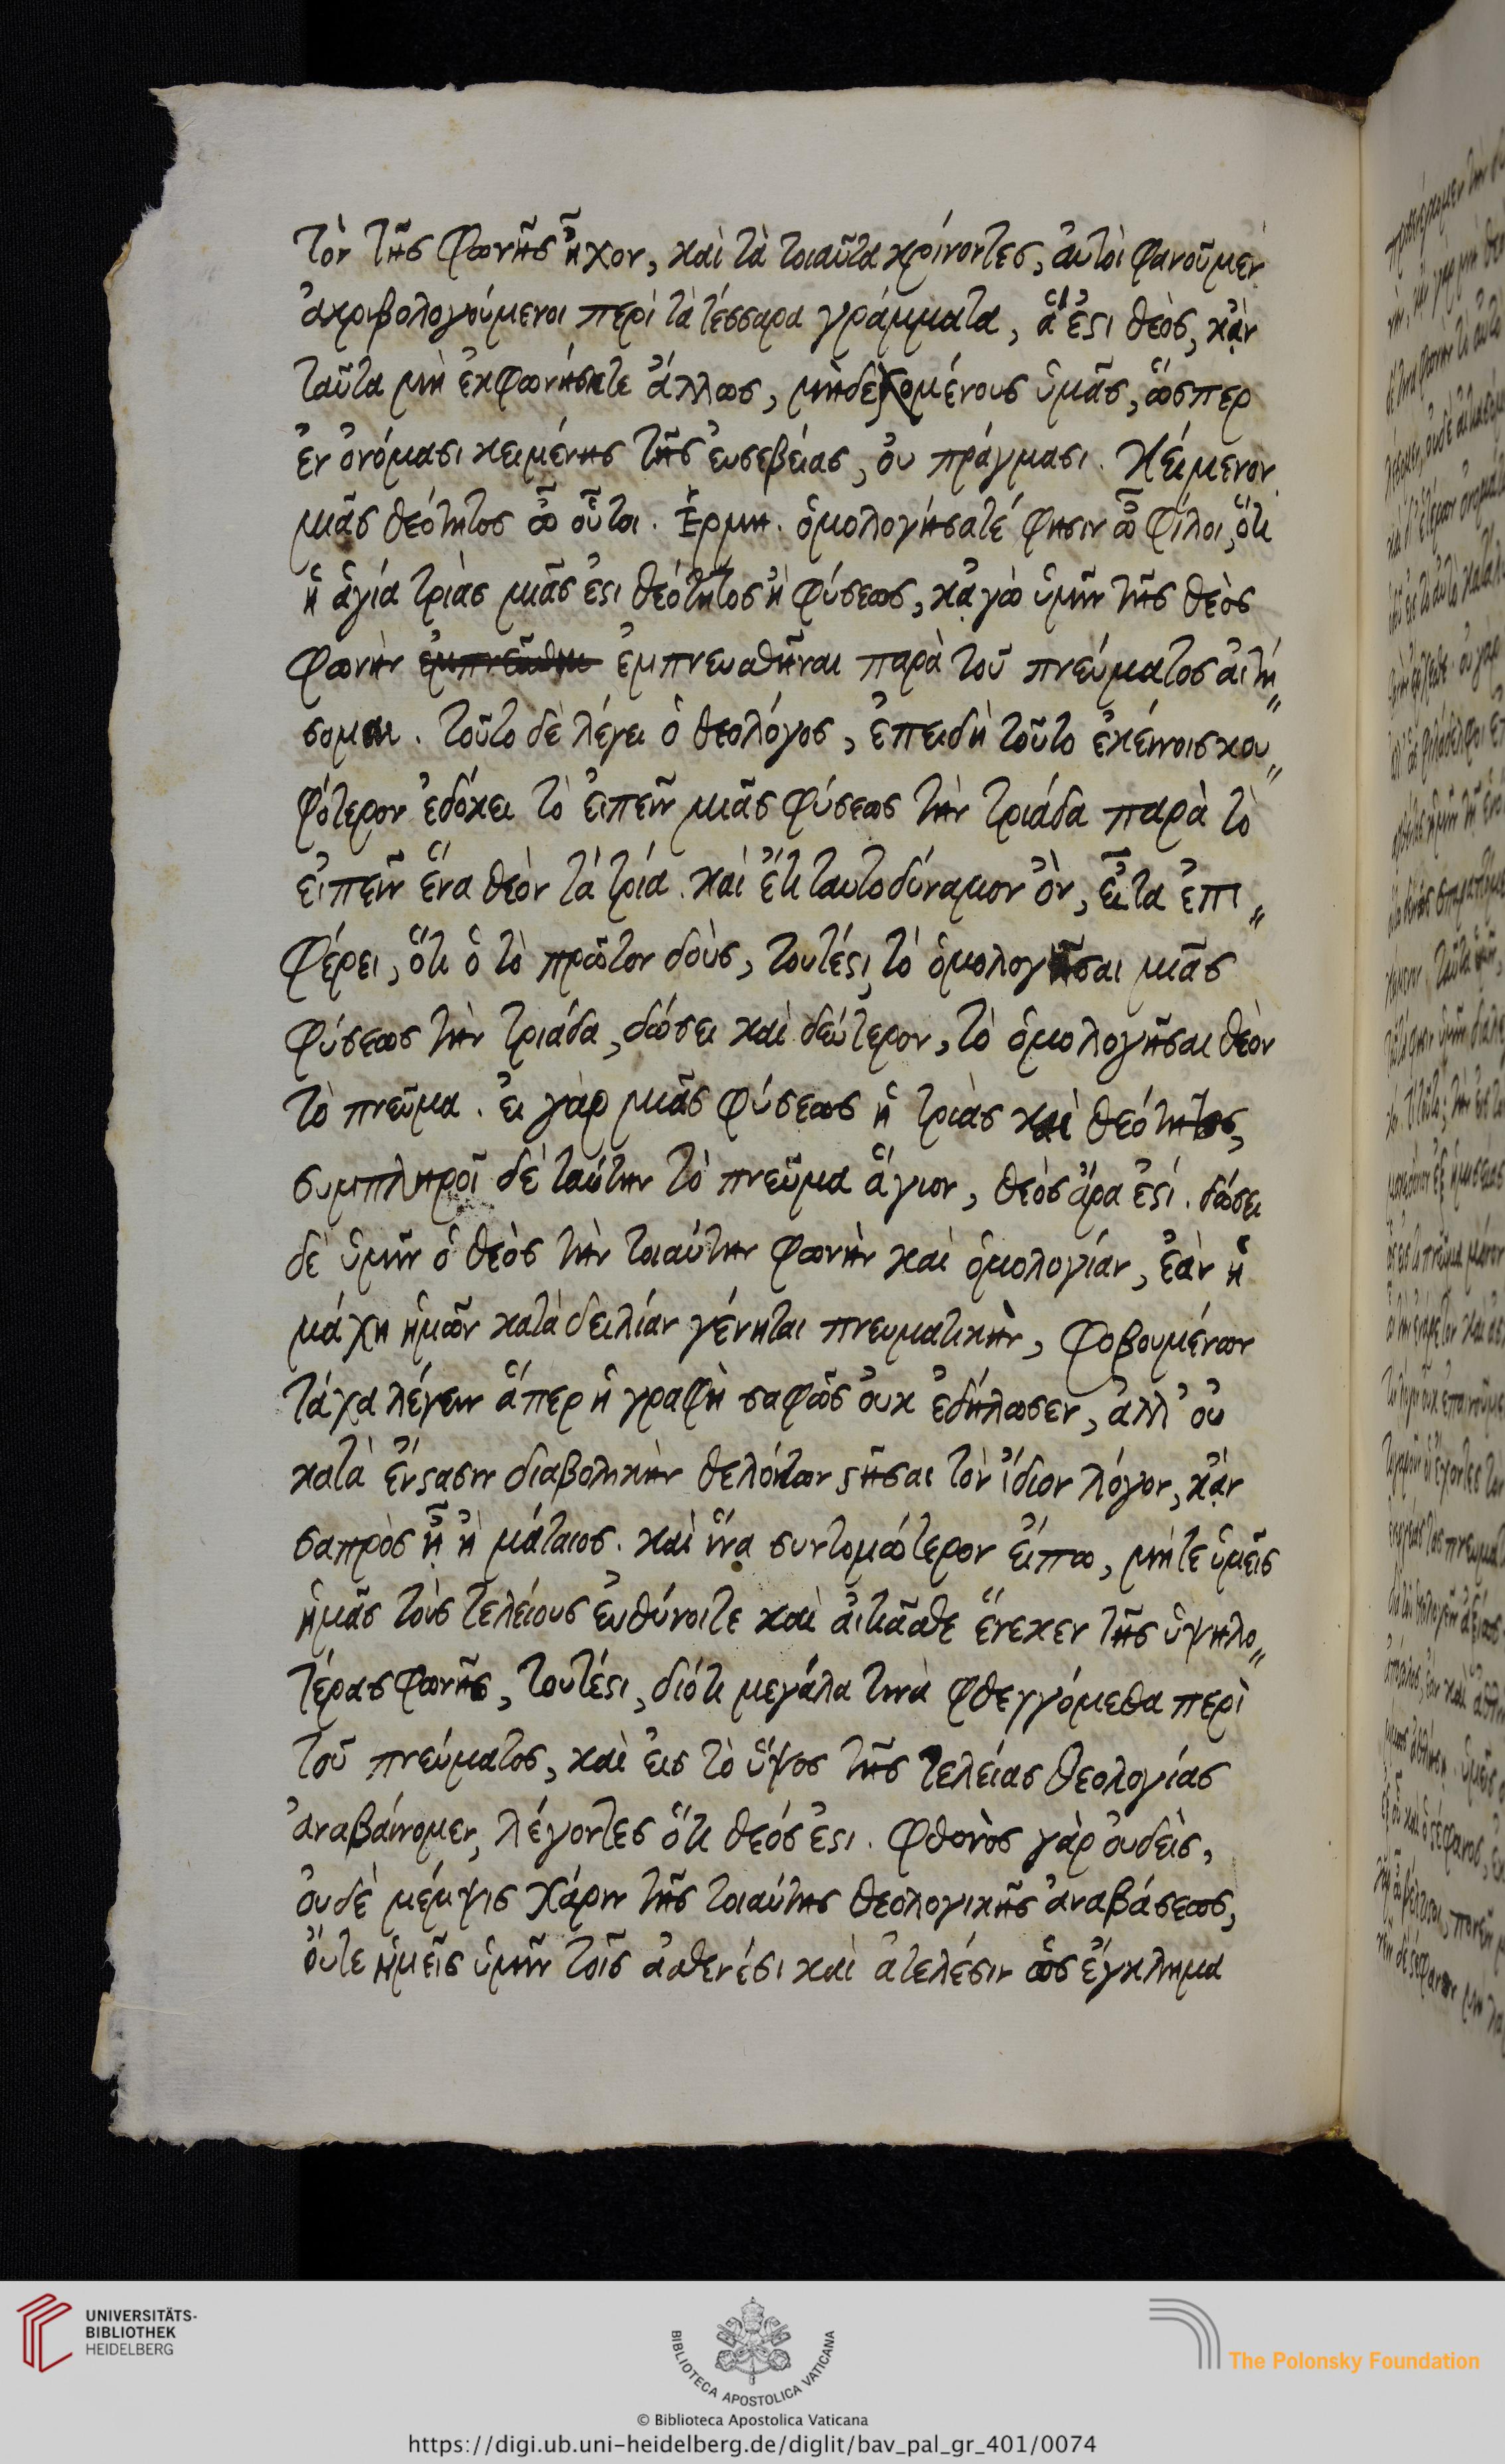 τὸν τῆς φωνῆς ἦχον, καὶ τὰ τοιαῦτα κρίνοντες, αὐτοὶ φανοῦμεν
ἀκριβολογούμενοι περὶ τὰ τέσσαρα γράμματα, ἅ ἐστι θεὸς, κᾂν
ταῦτα μὴ ἐκφωνήσητε ἄλλως, μὴ δεχομένους ὑμᾶς, ὥσπερ
ἐν ὀνόμασι κειμένης τῆς εὐσεβείας, οὐ πράγμασι. Κείμενον
μιᾶς θεότητος ὦ οὗτοι. Ἑρμη. ὁμολογήσατέ φησιν ὦ φίλοι, ὅτι
ἡ ἁγία τριὰς μιᾶς ἐστι θεότητος ἢ φύσεως, κᾀγὼ ὑμῖν τῆς θεὸς
φωνὴν ἐμπνευσθῆναι παρὰ τοῦ πνεύματος αἰτή〃
σομαι. τοῦτο δὲ λέγει ὁ θεολόγος, ἐπειδὴ τοῦτο ἐκείνοις κου〃
φότερον ἐδόκει τὸ εἰπεῖν μιᾶς φύσεως τὴν τριάδα παρὰ τὸ
εἰπεῖν ἕνα θεὸν τὰ τρία. καὶ ἔτι ταυτοδύναμον ὂν, εἶτα ἐπι〃
φέρει, ὅτι ὁ τὸ πρῶτον δοὺς, τουτέστι, τὸ ὁμολογῆσαι μιᾶς
φύσεως τὴν τριάδα, δώσει καὶ δεύτερον, τὸ ὁμολογῆσαι θεὸν
τὸ πνεῦμα. εἰ γὰρ μιᾶς φύσεως ἡ τριὰς καὶ θεότητος,
συμπληροῖ δὲ ταύτην τὸ πνεῦμα ἅγιον, θεὸς ἄρα ἐστί. δώσει
δὲ ὑμῖν ὁ θεὸς τὴν τοιαύτην φωνὴν καὶ ὁμολογίαν, ἐὰν ἡ
μάχη ἡμῶν κατὰ δειλίαν γένηται πνευματικὴν, φοβουμένων
τάχα λέγειν ἅπερ ἡ γραφὴ σαφῶς οὐκ ἐδήλωσεν, ἀλλ' οὐ
κατὰ ἔνστασιν διαβολικὴν θελόντων στῆσαι τὸν ἴδιον λόγον, κᾂν
σαπρὸς ᾖ ἢ μάταιος. καὶ ἵνα συντομώτερον εἴπω, μήτε ὑμεῖς
ἡμᾶς τοὺς τελείους εὐθύνοιτε καὶ αἰτιᾶσθε ἕνεκεν τῆς ὑψηλο〃
τέρας φωνῆς, τουτέστι, διότι μεγάλα τινὰ φθεγγόμεθα περὶ
τοῦ πνεύματος, καὶ εἰς τὸ ὕψος τῆς τελείας θεολογίας
ἀναβαίνομεν, λέγοντες ὅτι θεός ἐστι. φθονὸς γὰρ οὐδεὶς,
οὐδὲ μέμψις χάριν τῆς τοιαύτης θεολογικῆς ἀναβάσεως,
οὔτε ἡμεῖς ὑμῖν τοῖς ἀσθενέσι καὶ ἀτελέσιν ὡς ἔγκλημα
UNIVERSITÄTS-
BIBLIOTHEK
HEIDELBERG
BIBLIOTECA APOSTOLICA VATICANA
The Polonsky Foundation
© Biblioteca Apostolica Vaticana
https://digi.ub.uni-heidelberg.de/diglit/bav_pal_gr_401/0074